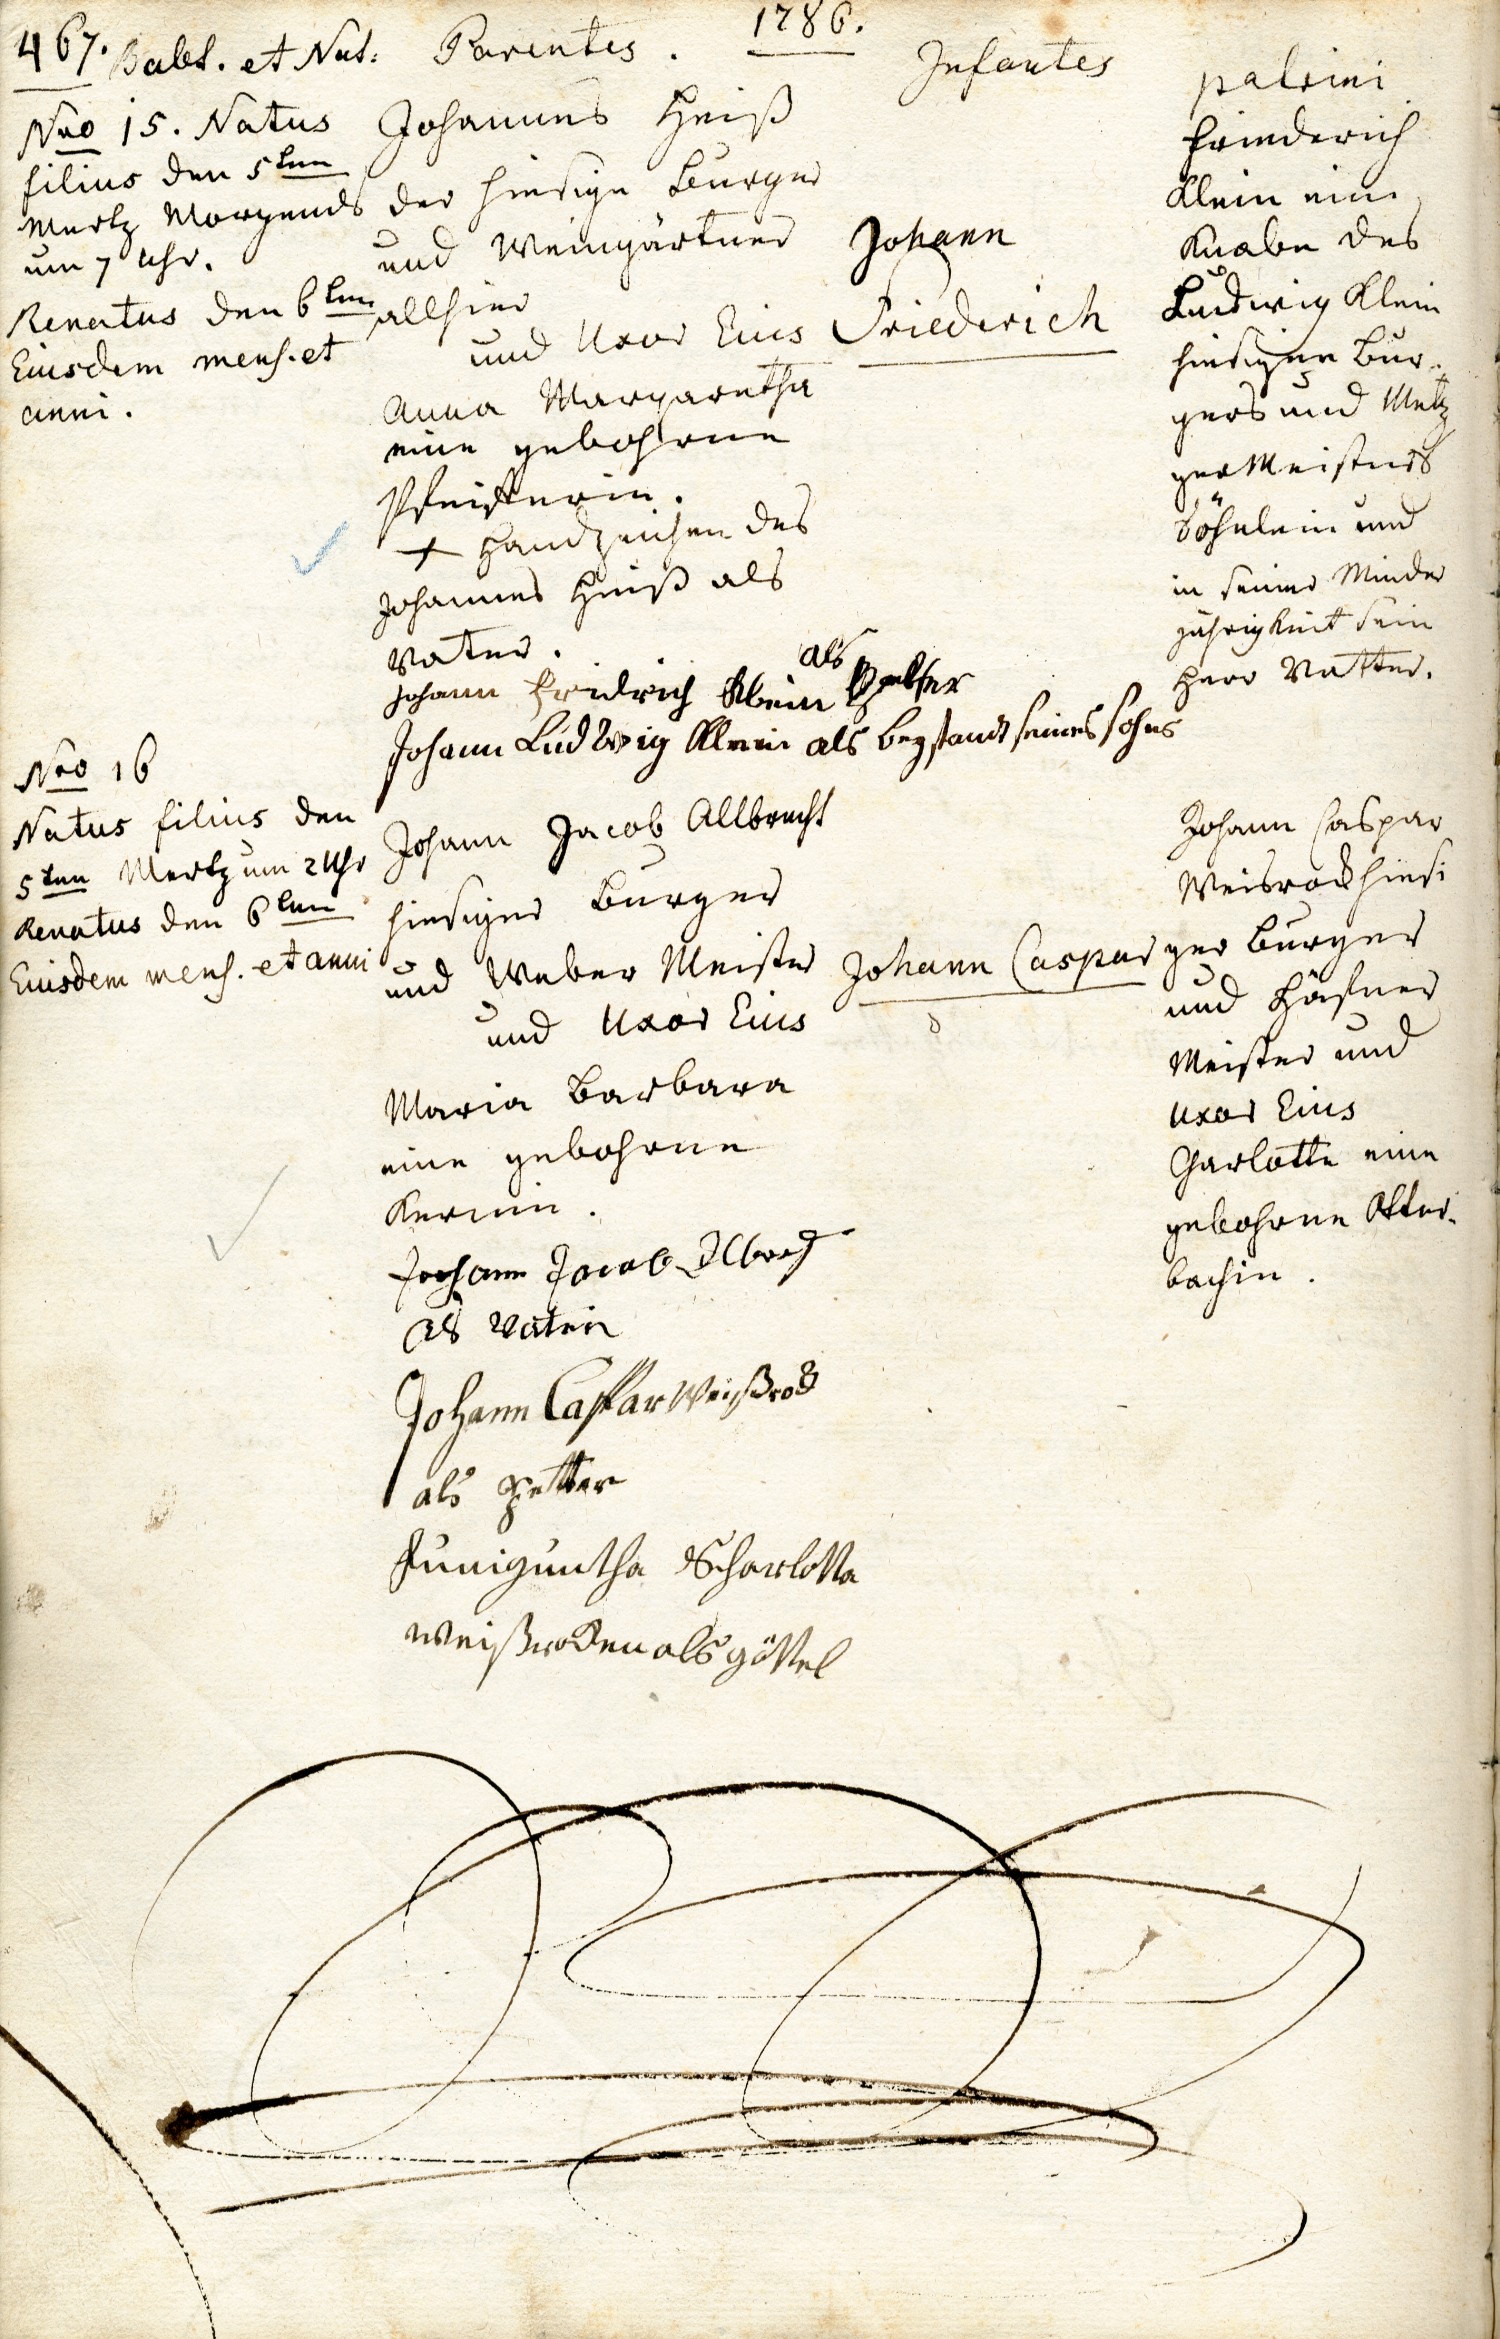 467. Babt. et Nat: Parentes. 1786. Infantes patrini
Nro 15. Natus
filius den 5ten
Mertz Morgends
um 7 Uhr.
Renatus den 6ten
Eiusdem mens. et
anni.
Johannes Heiß
der hiesige Burger
und Weingärtner
allhier
und Uxor Eius
Anna Margaretha
eine gebohrne
Pfeisterin.
+ Handzeichen des
Johannes Heiß als
Vater.
Johann Fridrich Klein als Petter
Johann Ludwig Klein als beystand seines sohns
Johann
Friederich
Friederich
Klein ein
Knabe des
Ludwig Klein
hiesigen Bur-
gers und Metz
ger Meisters
Söhnlein und
in seiner Minder
jährigkeit sein
Herr Vatter.
Nro 16
Natus filius den
5ten Mertz um 2 Uhr
Renatus den 6ten
Eiusdem mens. et anni
Johann Jacob Allbrecht
hiesiger Burger
und Weber Meister
und Uxor Eius
Maria Barbara
eine gebohrne
Kernin.
Johann Jacob Albrech
als Vater
Johann Casspar Weißrock
als Petter
Kuniguntha Scharlotta
Weißrocken als göttel
Johann Caspar
Johann Caspar
Weisrock hiesi
ger Burger
und Häfner
Meister und
Uxor Eius
Charlotte eine
gebohrne Otter-
bachin.